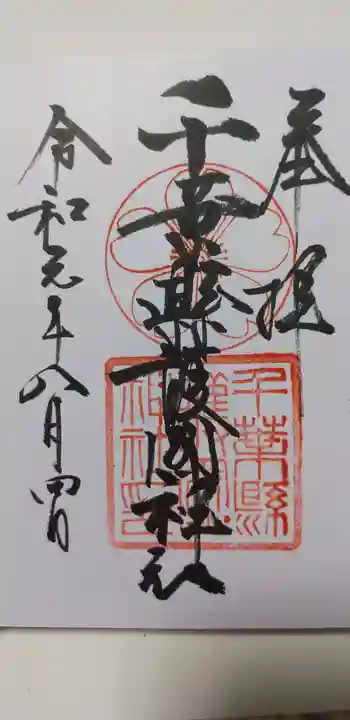 奉拝
千葉縣護國神社
令和元年八月四日
千葉縣護國神社印